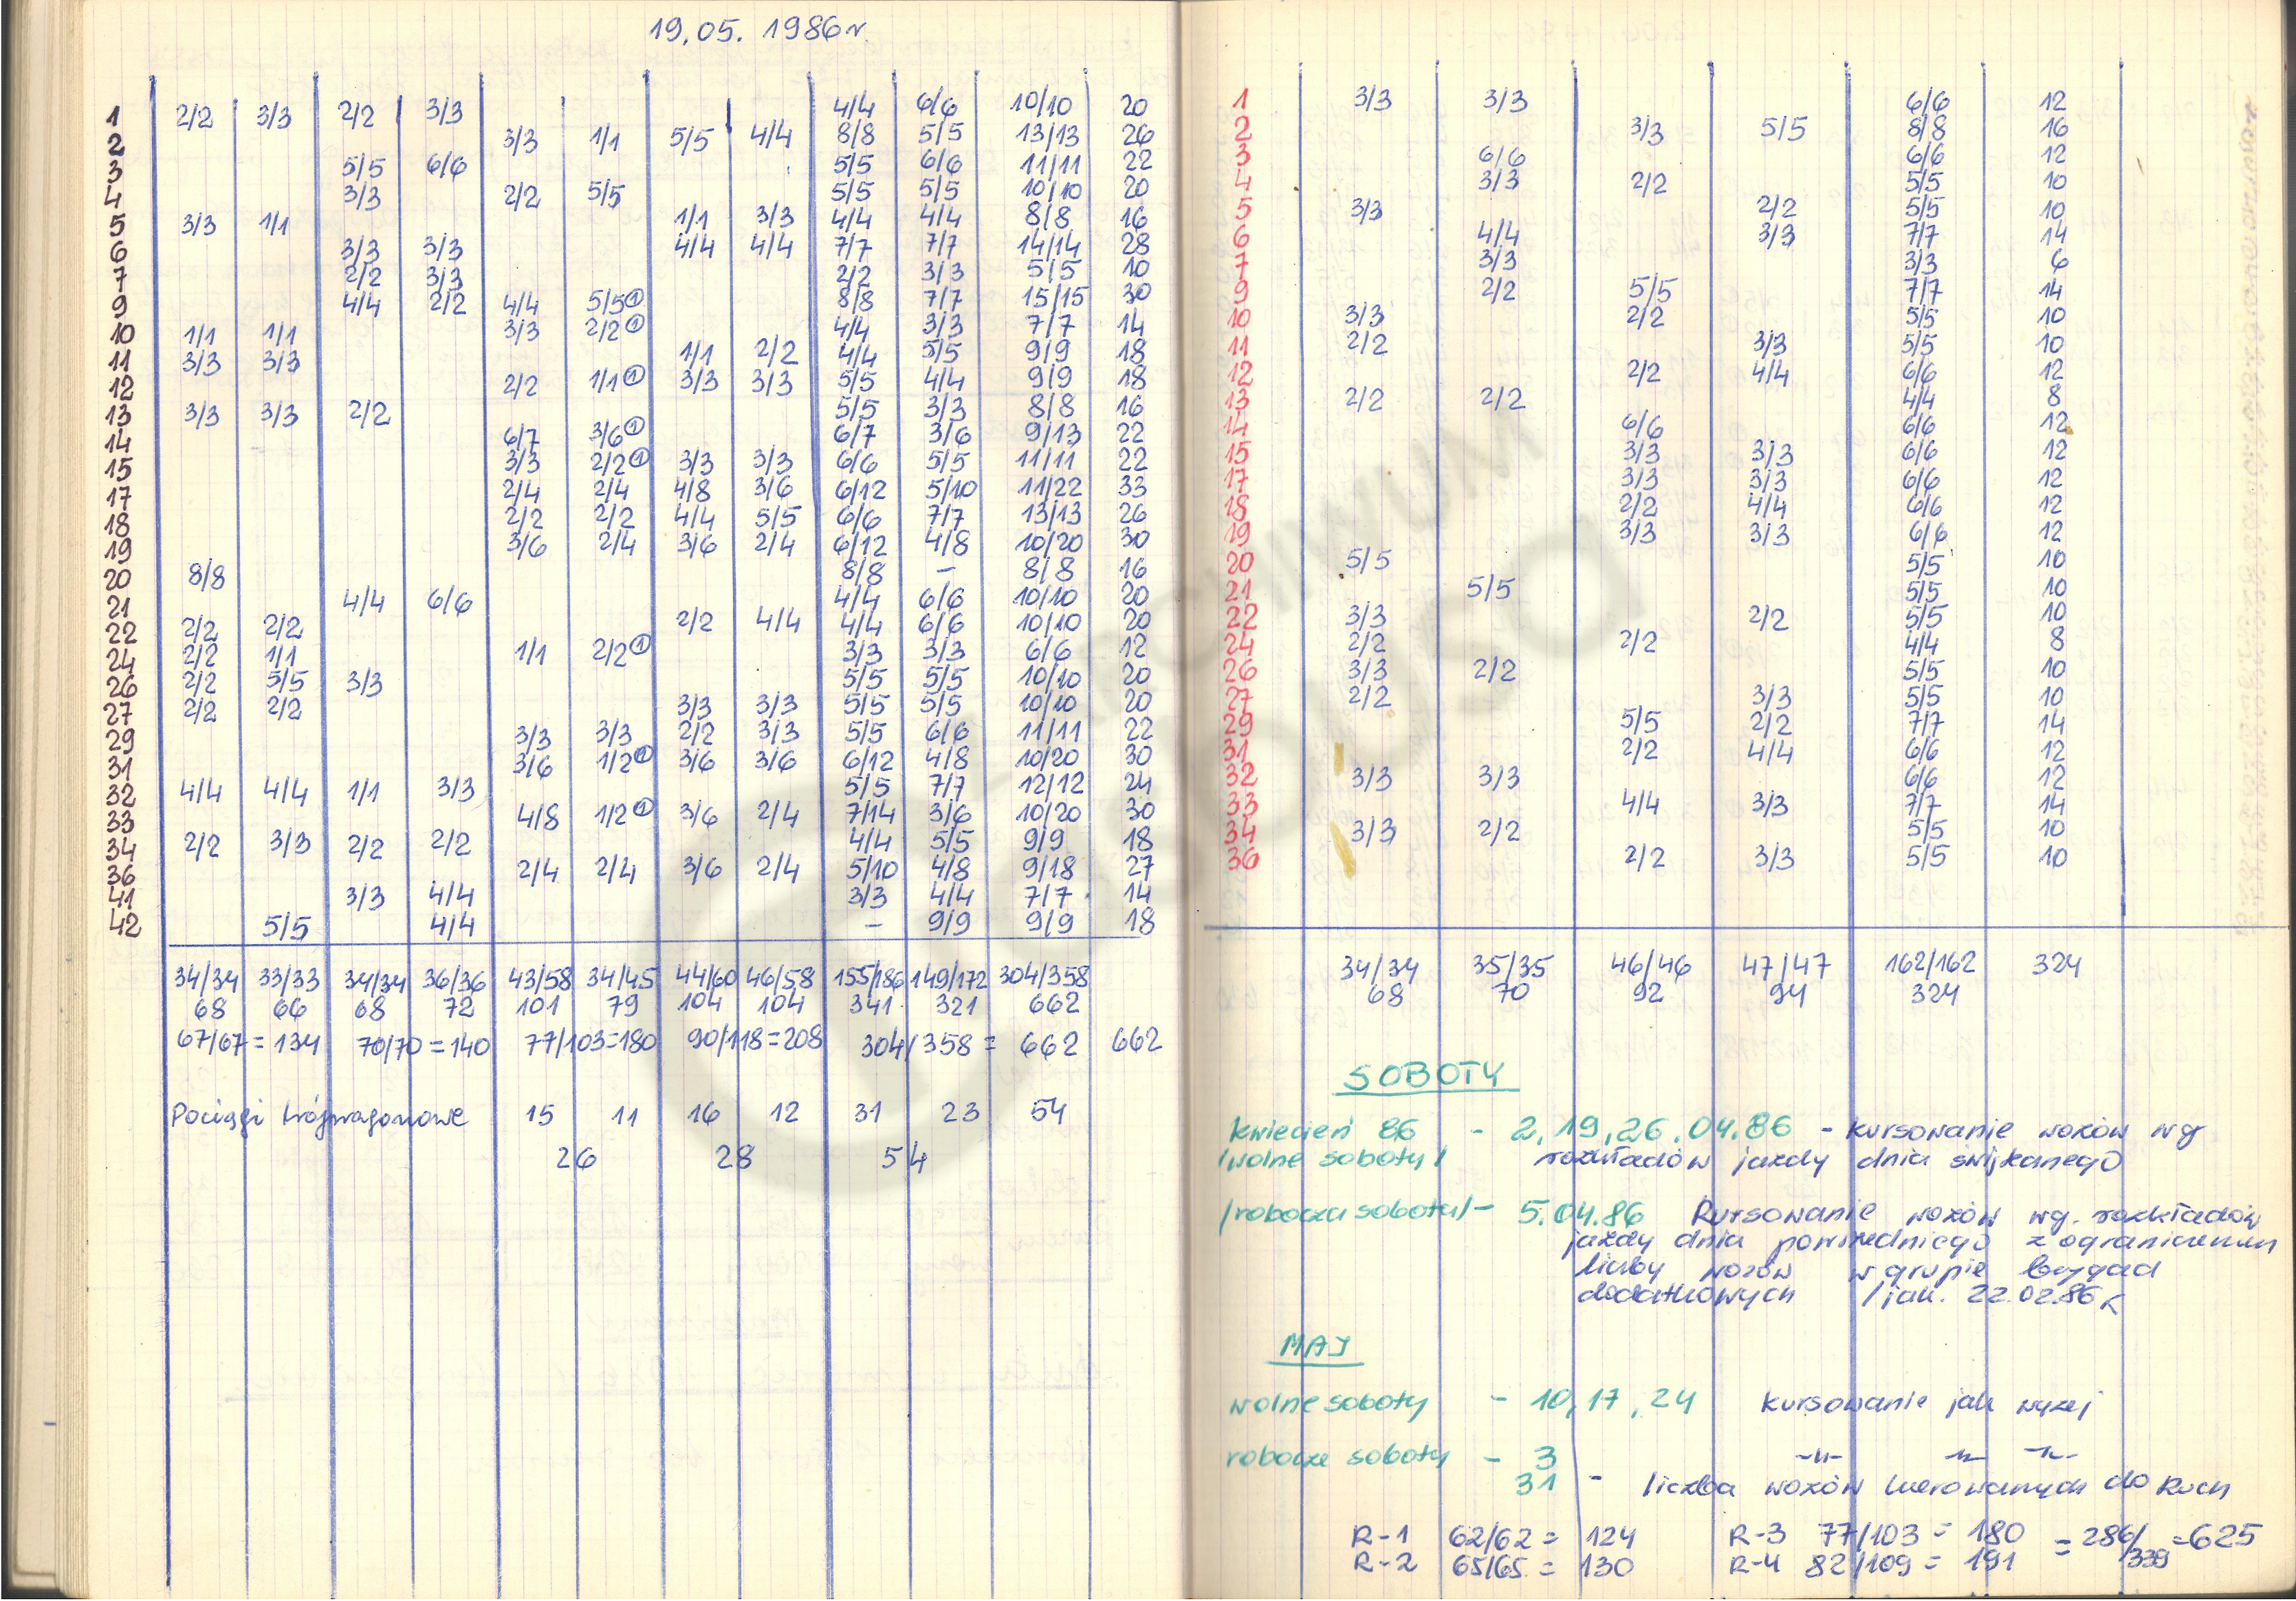 19.05.1986 r.
1 2/2 3/3 2/2 3/3 4/4 6/6 10/10 20
2 3/3 1/1 5/5 4/4 8/8 5/5 13/13 26
3 5/5 6/6 5/5 6/6 11/11 22
4 3/3 2/2 5/5 5/5 5/5 10/10 20
5 3/3 1/1 1/1 3/3 4/4 4/4 8/8 16
6 3/3 3/3 4/4 4/4 7/7 7/7 14/14 28
7 2/2 3/3 2/2 3/3 5/5 10
9 4/4 2/2 4/4 5/5① 8/8 7/7 15/15 30
10 1/1 1/1 3/3 2/2① 4/4 3/3 7/7 14
11 3/3 3/3 1/1 2/2 4/4 5/5 9/9 18
12 2/2 1/1① 3/3 3/3 5/5 4/4 9/9 18
13 3/3 3/3 2/2 5/5 3/3 8/8 16
14 6/7 3/6① 6/7 3/6 9/13 22
15 3/3 2/2① 3/3 3/3 6/6 5/5 11/11 22
17 2/4 2/4 4/8 3/6 6/12 5/10 11/22 33
18 2/2 2/2 4/4 5/5 6/6 7/7 13/13 26
19 3/6 2/4 3/6 2/4 6/12 4/8 10/20 30
20 8/8 8/8 – 8/8 16
21 4/4 6/6 4/4 6/6 10/10 20
22 2/2 2/2 2/2 4/4 4/4 6/6 10/10 20
24 2/2 1/1 1/1 2/2① 3/3 3/3 6/6 12
26 2/2 5/5 3/3 5/5 5/5 10/10 20
27 2/2 2/2 3/3 3/3 5/5 5/5 10/10 20
29 3/3 3/3 2/2 3/3 5/5 6/6 11/11 22
31 3/6 1/2① 3/6 3/6 6/12 4/8 10/20 30
32 4/4 4/4 1/1 3/3 5/5 7/7 12/12 24
33 4/8 1/2① 3/6 2/4 7/14 3/6 10/20 30
34 2/2 3/3 2/2 2/2 4/4 5/5 9/9 18
36 2/4 2/4 3/6 2/4 5/10 4/8 9/18 27
41 3/3 4/4 3/3 4/4 7/7 14
42 5/5 4/4 – 9/9 9/9 18
34/34 33/33 34/34 36/36 43/58 34/45 44/60 46/58 155/186 149/172 304/358
68 66 68 72 101 79 104 104 341 321 662
67/67 = 134 70/70 = 140 77/103=180 90/118=208 304/358 = 662 662
Pociągi trójwagonowe 15 11 16 12 31 23 54
26 28 54
1 3/3 3/3 6/6 12
2 3/3 5/5 8/8 16
3 6/6 6/6 12
4 3/3 2/2 5/5 10
5 3/3 2/2 5/5 10
6 4/4 3/3 7/7 14
7 3/3 3/3 6
9 2/2 5/5 7/7 14
10 3/3 2/2 5/5 10
11 2/2 3/3 5/5 10
12 2/2 4/4 6/6 12
13 2/2 2/2 4/4 8
14 6/6 6/6 12
15 3/3 3/3 6/6 12
17 3/3 3/3 6/6 12
18 2/2 4/4 6/6 12
19 3/3 3/3 6/6 12
20 5/5 5/5 10
21 5/5 5/5 10
22 3/3 2/2 5/5 10
24 2/2 2/2 4/4 8
26 3/3 2/2 5/5 10
27 2/2 3/3 5/5 10
29 5/5 2/2 7/7 14
31 2/2 4/4 6/6 12
32 3/3 3/3 6/6 12
33 4/4 3/3 7/7 14
34 3/3 2/2 5/5 10
36 2/2 3/3 5/5 10
34/34 35/35 46/46 47/47 162/162 324
68 70 92 94 324
SOBOTY
kwiecień 86 - 2,19,26.04.86 - kursowanie wozów wg
/wolne soboty/ rozkładów jazdy dnia świątecznego
/robocza sobota/ - 5.04.86 Kursowanie wozów wg. rozkładów
jazdy dnia powszedniego z ograniczeniem
liczby wozów w grupie brygad
dodatkowych /jak. 22.02.86
MAJ
wolne soboty - 10,17,24 kursowanie jak wyżej
robocze soboty - 3 -"- -"- -"-
31 - liczba wozów kierowanych do Ruch
R-1 62/62 = 124 R-3 77/103 = 180 = 286/339 =625
R-2 65/65 = 130 R-4 82/109 = 191